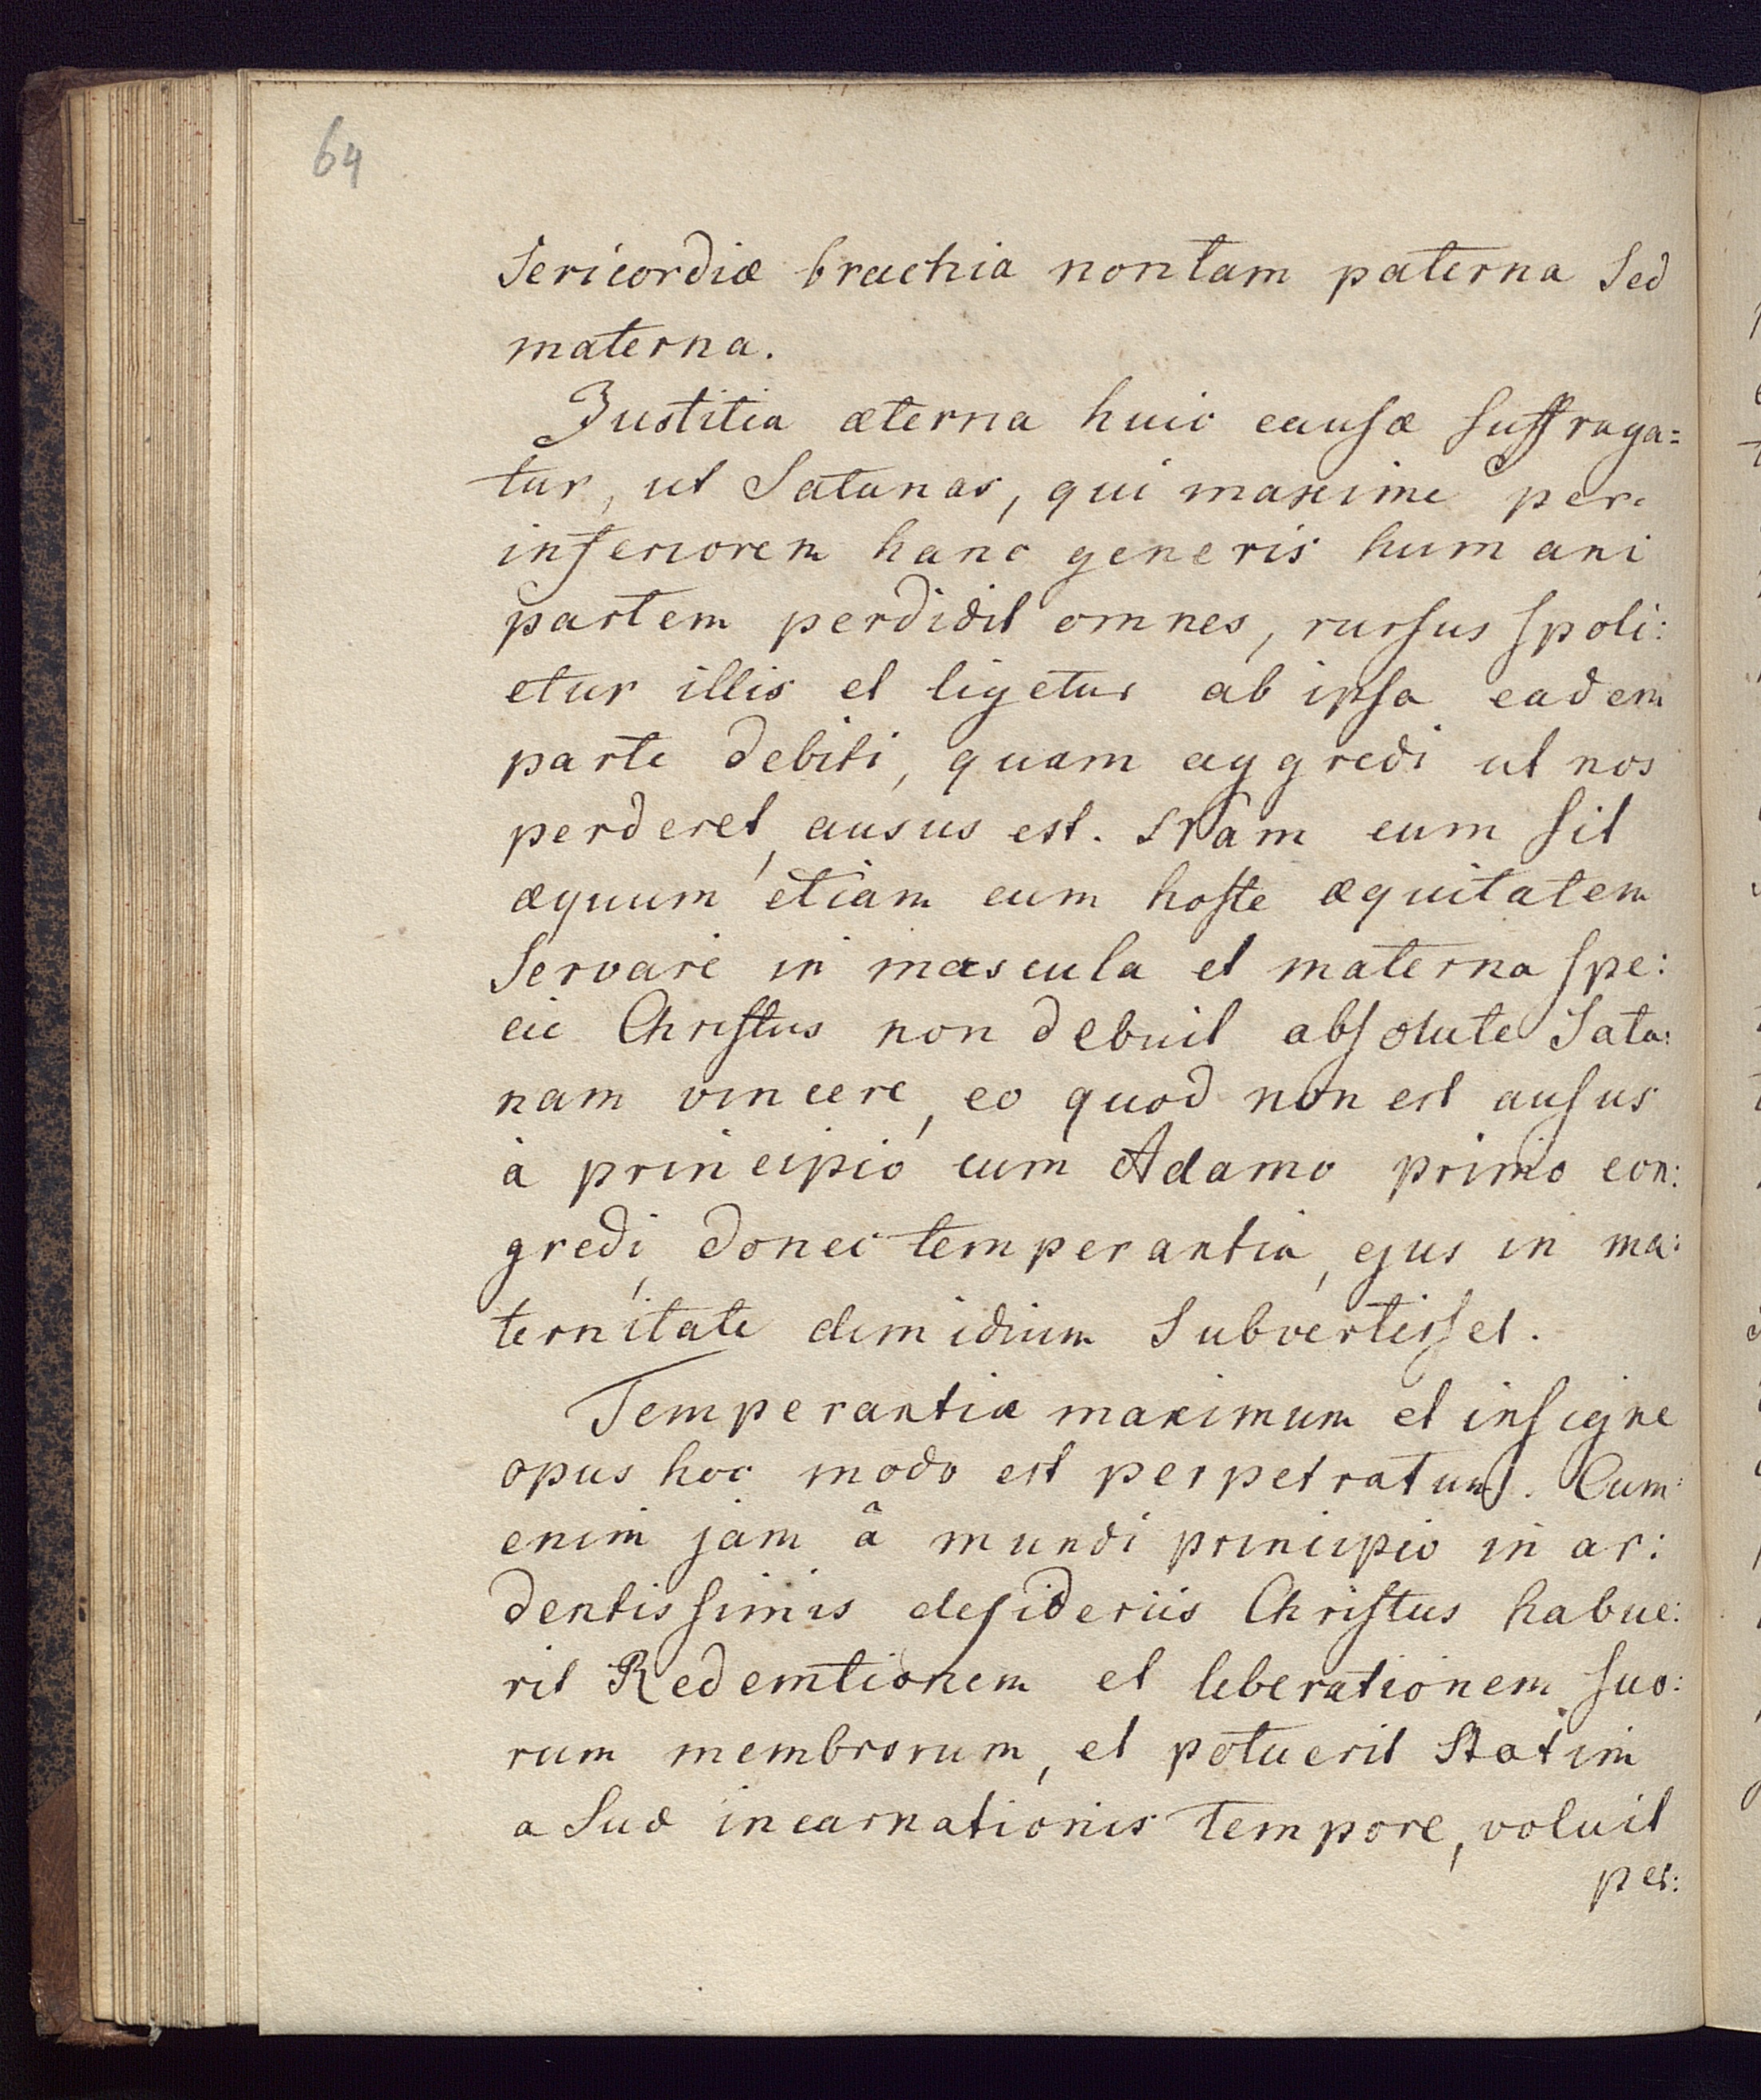 64
sericordiæ brachia nontam paterna sed
materna.
Justitia æterna huic causæ suffraga=
tur, ut Satanas, qui maxime per
inferiorem hanc generis humani
partem perdidit omnes, rursus spoli:
etur illis et ligetur ab ipsa eadem
parte debiti, quam aggredi ut nos
perderet, ausus est. Nam cum sit
æquum etiam cum hoste æquitatem
servare in mascula et materna spe:
cie Christus non debuit absolute Sata:
nam vincere, eo quod non est ausus
à principio cum Adamo primo con:
gredi, donec temperantia, ejus in ma:
ternitate dimidium subvertisset.
Temperantiæ maximum et insigne
opus hoc modo est perpetratum. Cum
enim jam â mundi principio in ar:
dentissimis desideriis Christus habue:
rit Redemtionem et liberationem suo:
rum membrorum, et potuerit statim
a suæ incarnationis tempore, voluit
per: